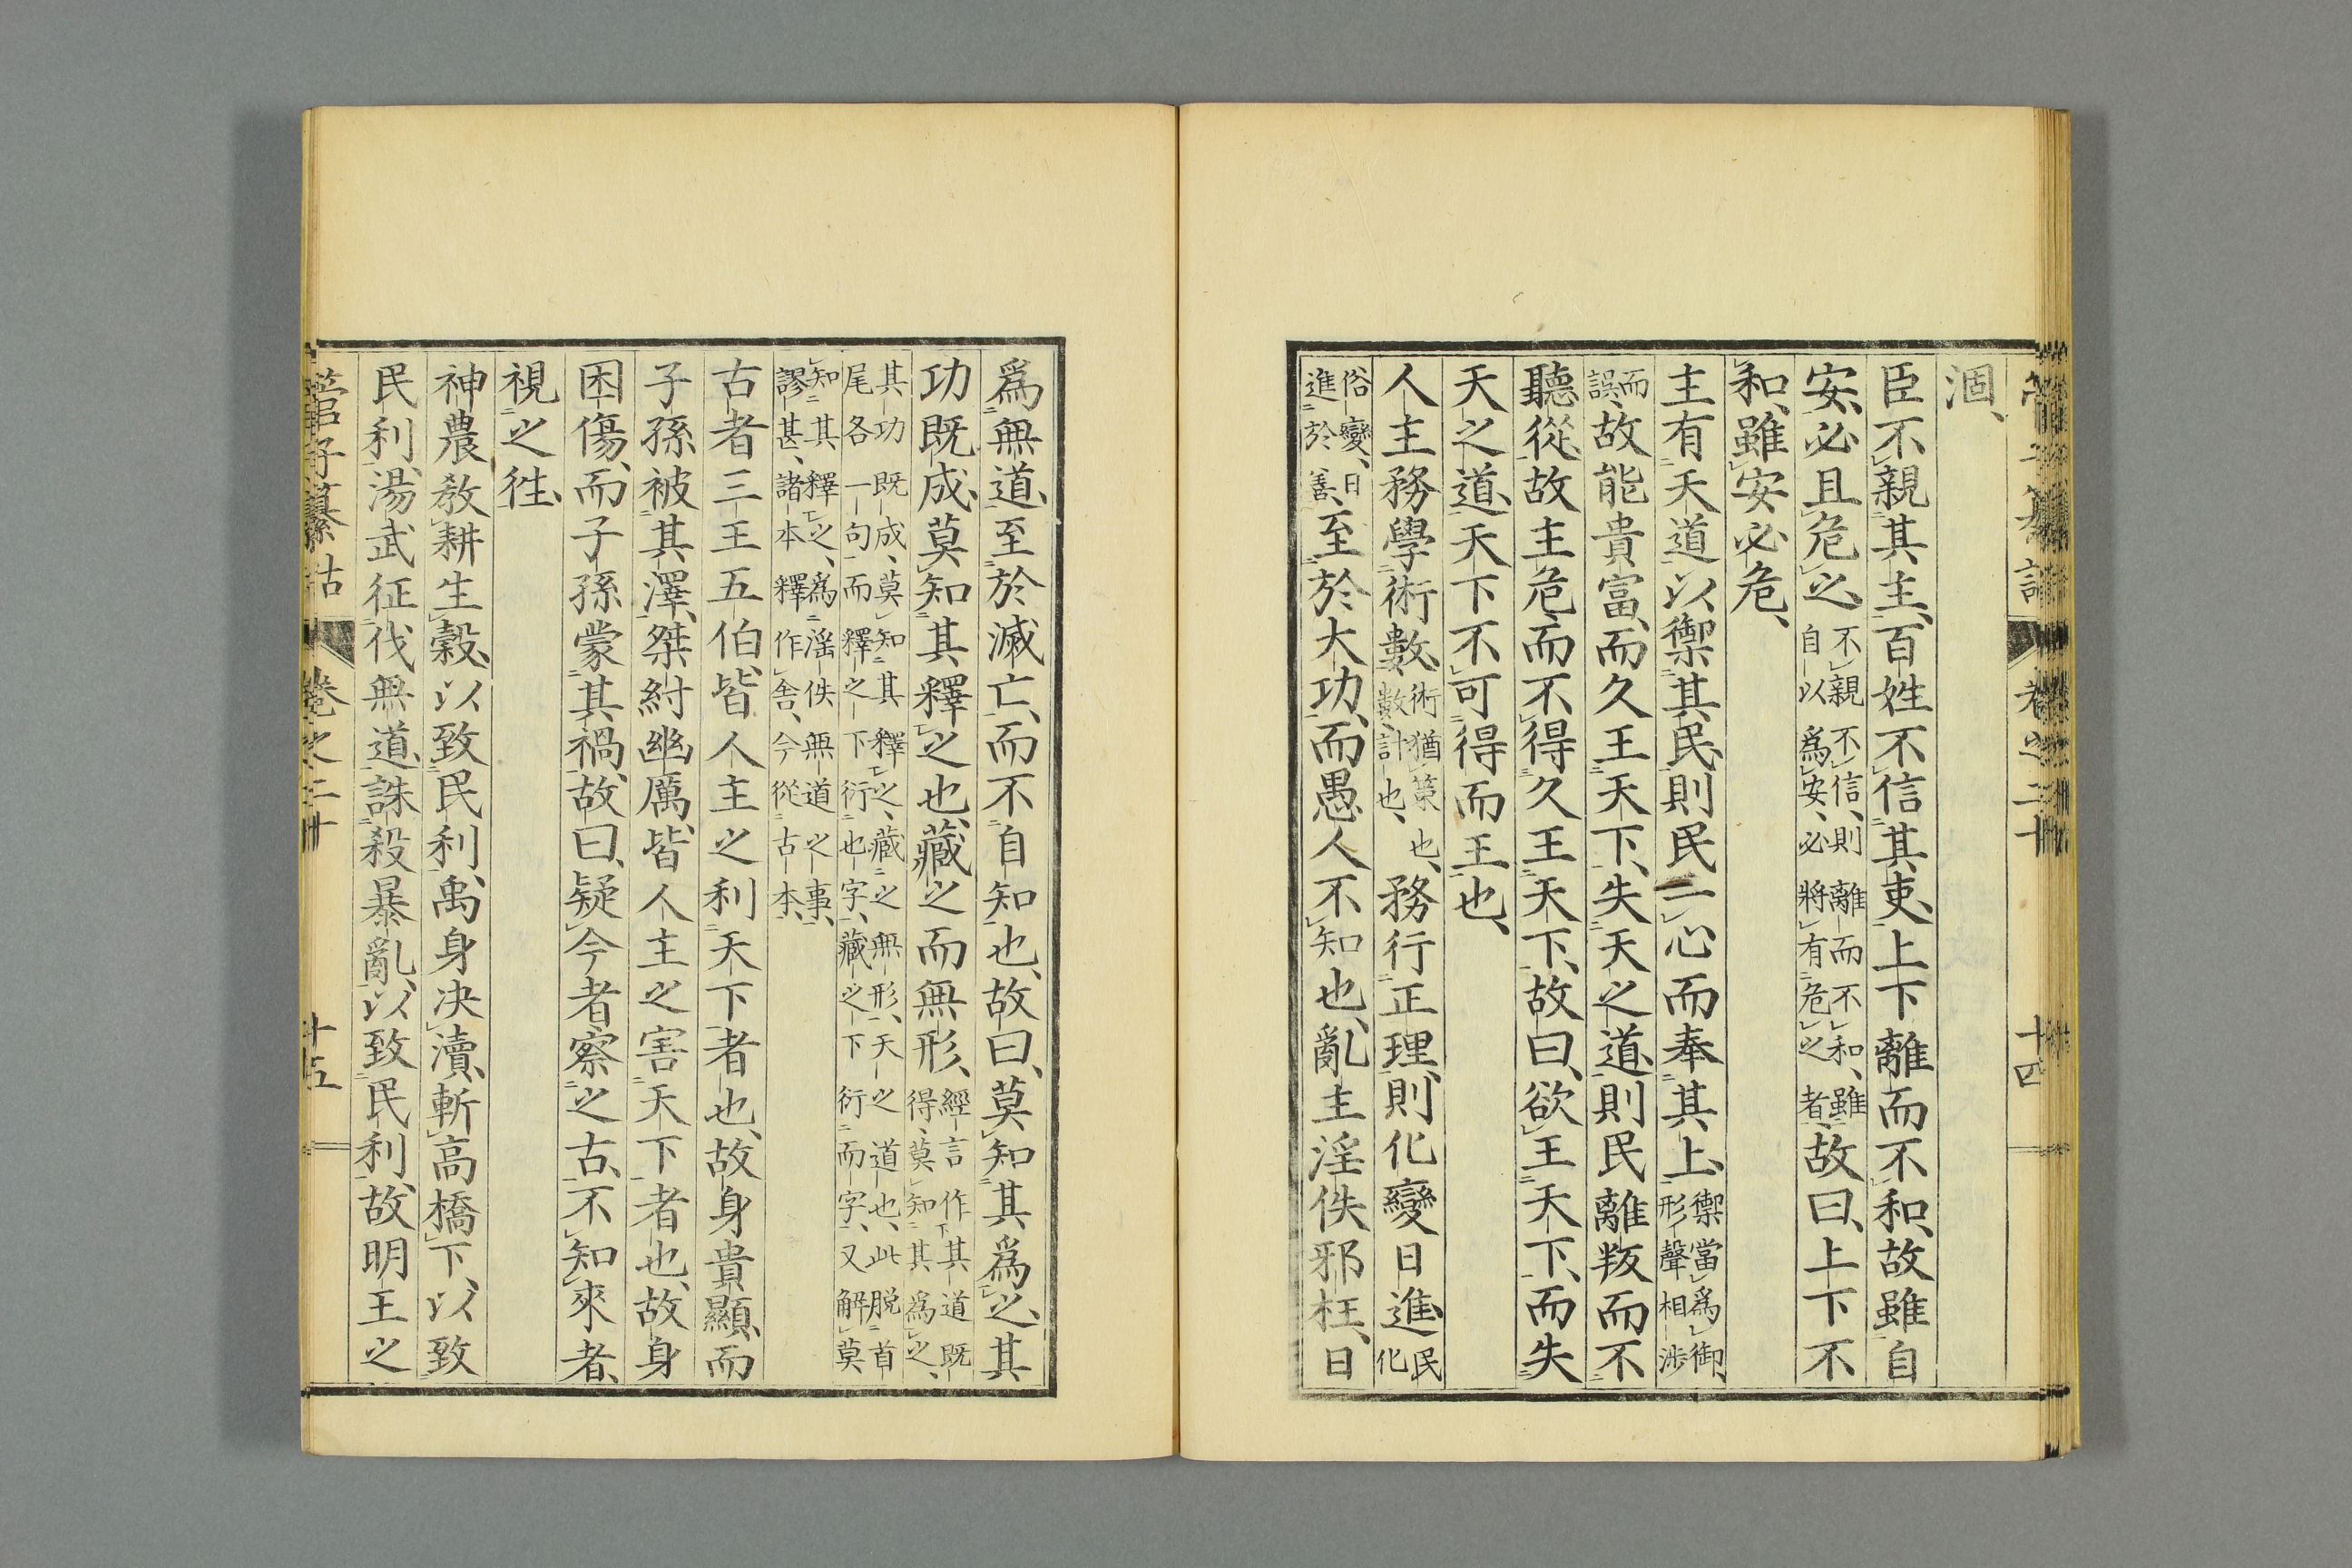 涸、
臣不親其主、百姓不信其吏、上下離而不和、故雖自
安、必且危之、不親不信、則離而不和、雖自以爲安、必將有危之者、故曰、上下不
和、雖安必危、
主有天道、以禦其民、則民一心而奉其上、禦當爲御、形聲相涉
而誤、故能貴富、而久王天下、失天之道、則民離叛而不
聽從、故主危、而不得久王天下、故曰、欲王天下、而失
天之道、天下不可得而王也、
人主務學術數、術猶策也、數計也、務行正理、則化變日進、民化
俗變、日進於善、至於大功、而愚人不知也、亂主淫佚邪枉、日
爲無道、至於滅亡、而不自知也、故曰、莫知其爲之、其
功既成、莫知其釋之也、藏之而無形、經言作其道既得、莫知其爲之、
其功既成、莫知其釋之、藏之無形、天之道也、此脱首尾各一句、而釋之下衍也字、藏之下衍而字、又解莫
知其釋之、爲淫佚無道之事、謬甚、諸本釋作舍、今從古本、
古者三王五伯、皆人主之利天下者也、故身貴顯、而
子孫被其澤、桀紂幽厲、皆人主之害天下者也、故身
困傷、而子孫蒙其禍、故曰、疑今者察之古、不知來者、
視之徃、
神農敎耕生穀、以致民利、禹身决瀆、斬高橋下、以致
民利、湯武征伐無道、誅殺暴亂、以致民利、故明王之
管子纂詁　卷之二十　十五
卷之二十　十四